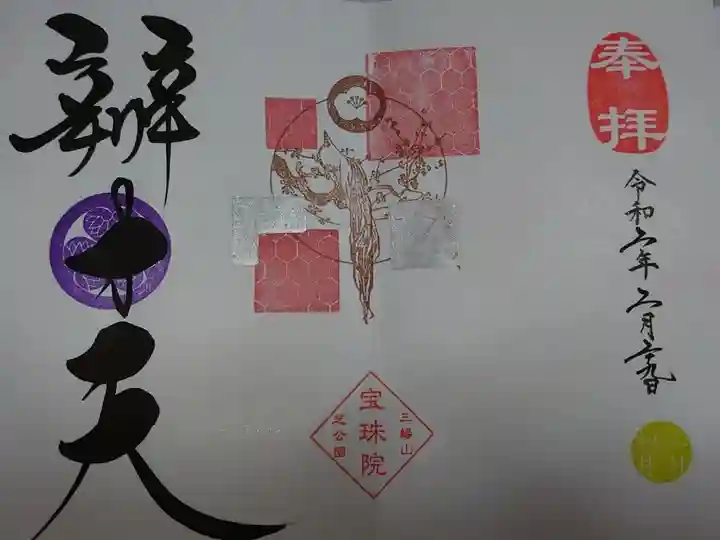 奉拝
令和六年二月二十九日
三縁山
宝珠院
芝公園
辨才天